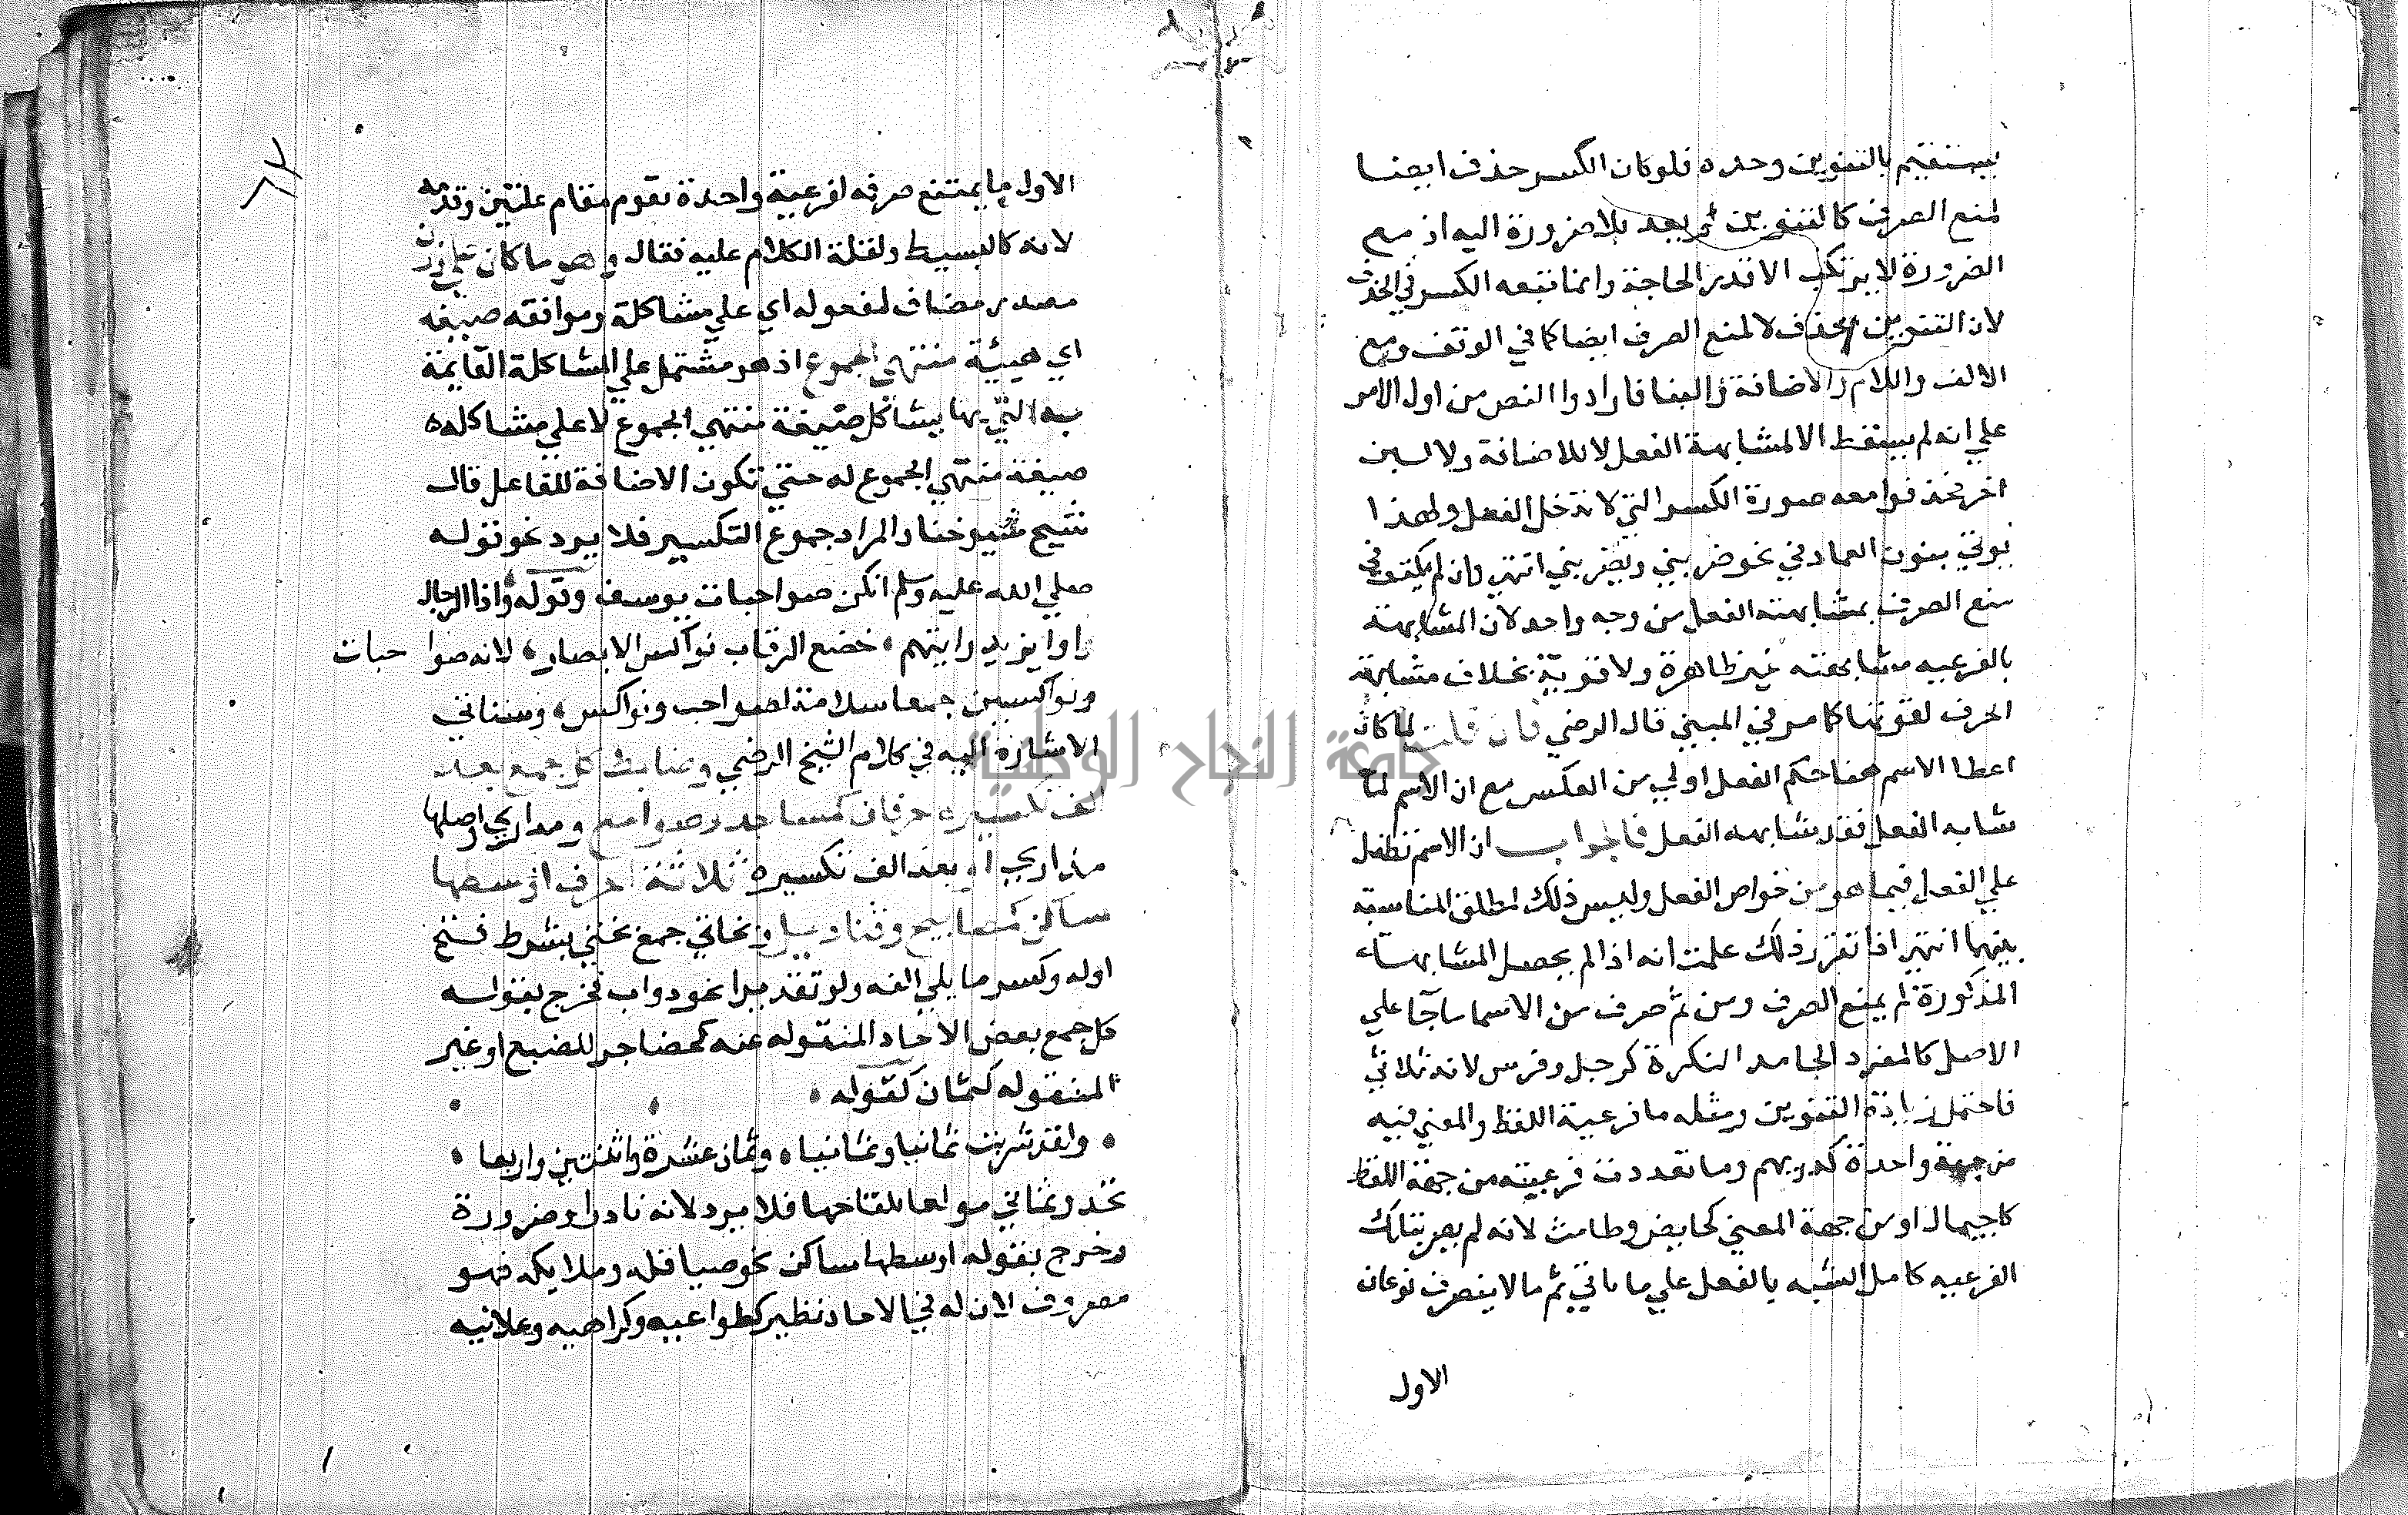 يستقيم بالتنوين وحده فلو كان الكسر حذف ايضا
لمنع الصرف كالتنوين لم يعد بلا ضرورة اليه اذ مع
الضرورة لا يرتكب الا قدر الحاجة وانما تبعه الكسر في الحذف
لان التنوين يحذف لا لمنع الصرف ايضا كما في الوقف ومع
الالف واللام والاضافة والبنا فارادوا النص من اول الامر
علي انه لم يسقط الا لمشابهة الفعل لا للاضافة ولا لسبب
اخر فحذفوا معه صورة الكسر التي لا تدخل الفعل ولهذا
يوتي بنون العماد في نحو ضربني ويضربني انتهي وان لم يكتف في
منع الصرف بمشابهته الفعل من وجه واحد لان المشابهة
بالفرعيه مشابهته غير ظاهرة ولا قوية بخلاف مشابهة
الحرف لقوتها كما مر في المبني قال الرضي فان قلت لما كان
اعطا الاسم حكم الفعل اولي من العكس مع ان الاسم لما
شابه الفعل فقد شابهه الفعل فالجواب ان الاسم تطفل
علي الفعل فيما هو من خواص الفعل وليس ذلك لمطلق المناسبة
بينهما انتهي اذا تقرر ذلك علمت انه اذا لم يحصل المشابهة
المذكورة لم يمنع الصرف ومن ثم صرف من الاسما ما جا علي
الاصل كالمفرد الجامد النكرة كرجل وفرس لانه ثلاثي
فاحتمل زيادة التنوين ومثله ما فرعية اللفظ والمعني فيه
من جهة واحدة كدريهم وما تعددت فرعيته من جهة اللفظ
كاجيمال او من جهة المعني كحايض وطامث لانه لم يصر بتلك
الفرعيه كامل الشبه بالفعل علي ما ياتي ثم ما لا ينصرف نوعان
الاول
الاول ما يمتنع صرفه لفرعية واحدة تقوم مقام علتين وقدمه
لانه كالبسيط ولقلة الكلام عليه فقال وهو ما كان علي وزن
مصدر مضاف لمفعوله اي علي مشاكلة وموافقه صيغه
اي هيئة منتهي الجموع اذ هو مشتمل علي المشاكلة القايمة
به التي بها يشاكل صيغة منتهي الجموع لا علي مشاكله
صيغة منتهي الجموع له حتي تكون الاضافة للفاعل قال
شيخ شيوخنا والمراد جموع التكسير فلا يرد نحو قوله
صلي الله عليه وسلم انكن صواحبات يوسف وقوله واذا الرجال
راوا يزيد رايتهم خضع الرقاب نواكس الابصار لانه صوا حبات
ونواكسين جمعا سلامة لصواحب ونواكس وستاتي
الاشارة اليه في كلام الشيخ الرضي وضابط كل جمع بعد
الف تكسيره حرفان كمساجد وصوامع ومداري اصلها
مداري او بعد الف تكسيره ثلاثة احرف اوسطها
ساكن كمصابيح وقناديل وبخاتي جمع بختي بشرط فتح
اوله وكسر ما يلي الفه ولو تقديرا نحو دواب فخرج بقوله
كل جمع بعض الاحاد المنقوله عنه كحضاجر للضبع او غير
المنقوله كثمان كقوله
ولقد شربت ثمانيا وثمانيا وثمان عشرة واثنتين واربعا
يحدو ثماني مولعا بلقاحها فلا يرد لانه نادر او ضرورة
وخرج بقوله اوسطها ساكن نحو صياقله وملايكه فهو
مصروف لان له في الاحاد نظير كطواعيه وكراهيه وعلانيه